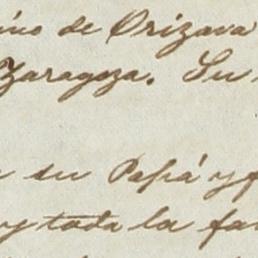 de Orizava
Zaragoza. Su
su Papá y
y toda la